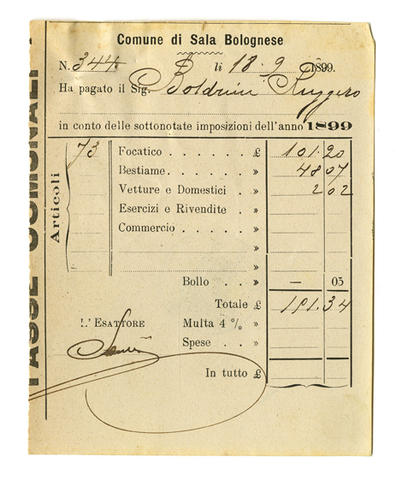 Comune di Sala Bolognese
N. 344 B li 18 9 1899.
Ha pagato il Sig. Balduini Ruggero
in conto delle sottonotate imposizioni dell'anno 1899
TASSE COMUNALI.
Articoli
73 Focatico . . . . . . £ 101.20
Bestiame. . . . . . » 48 07
Vetture e Domestici . » 2 02
Esercizi e Rivendite . »
Commercio . . . . . »
»
Bollo . » — 05
Totale £ 151.34
L'ESATTORE Multa 4 % »
Spese . . »
In tutto £